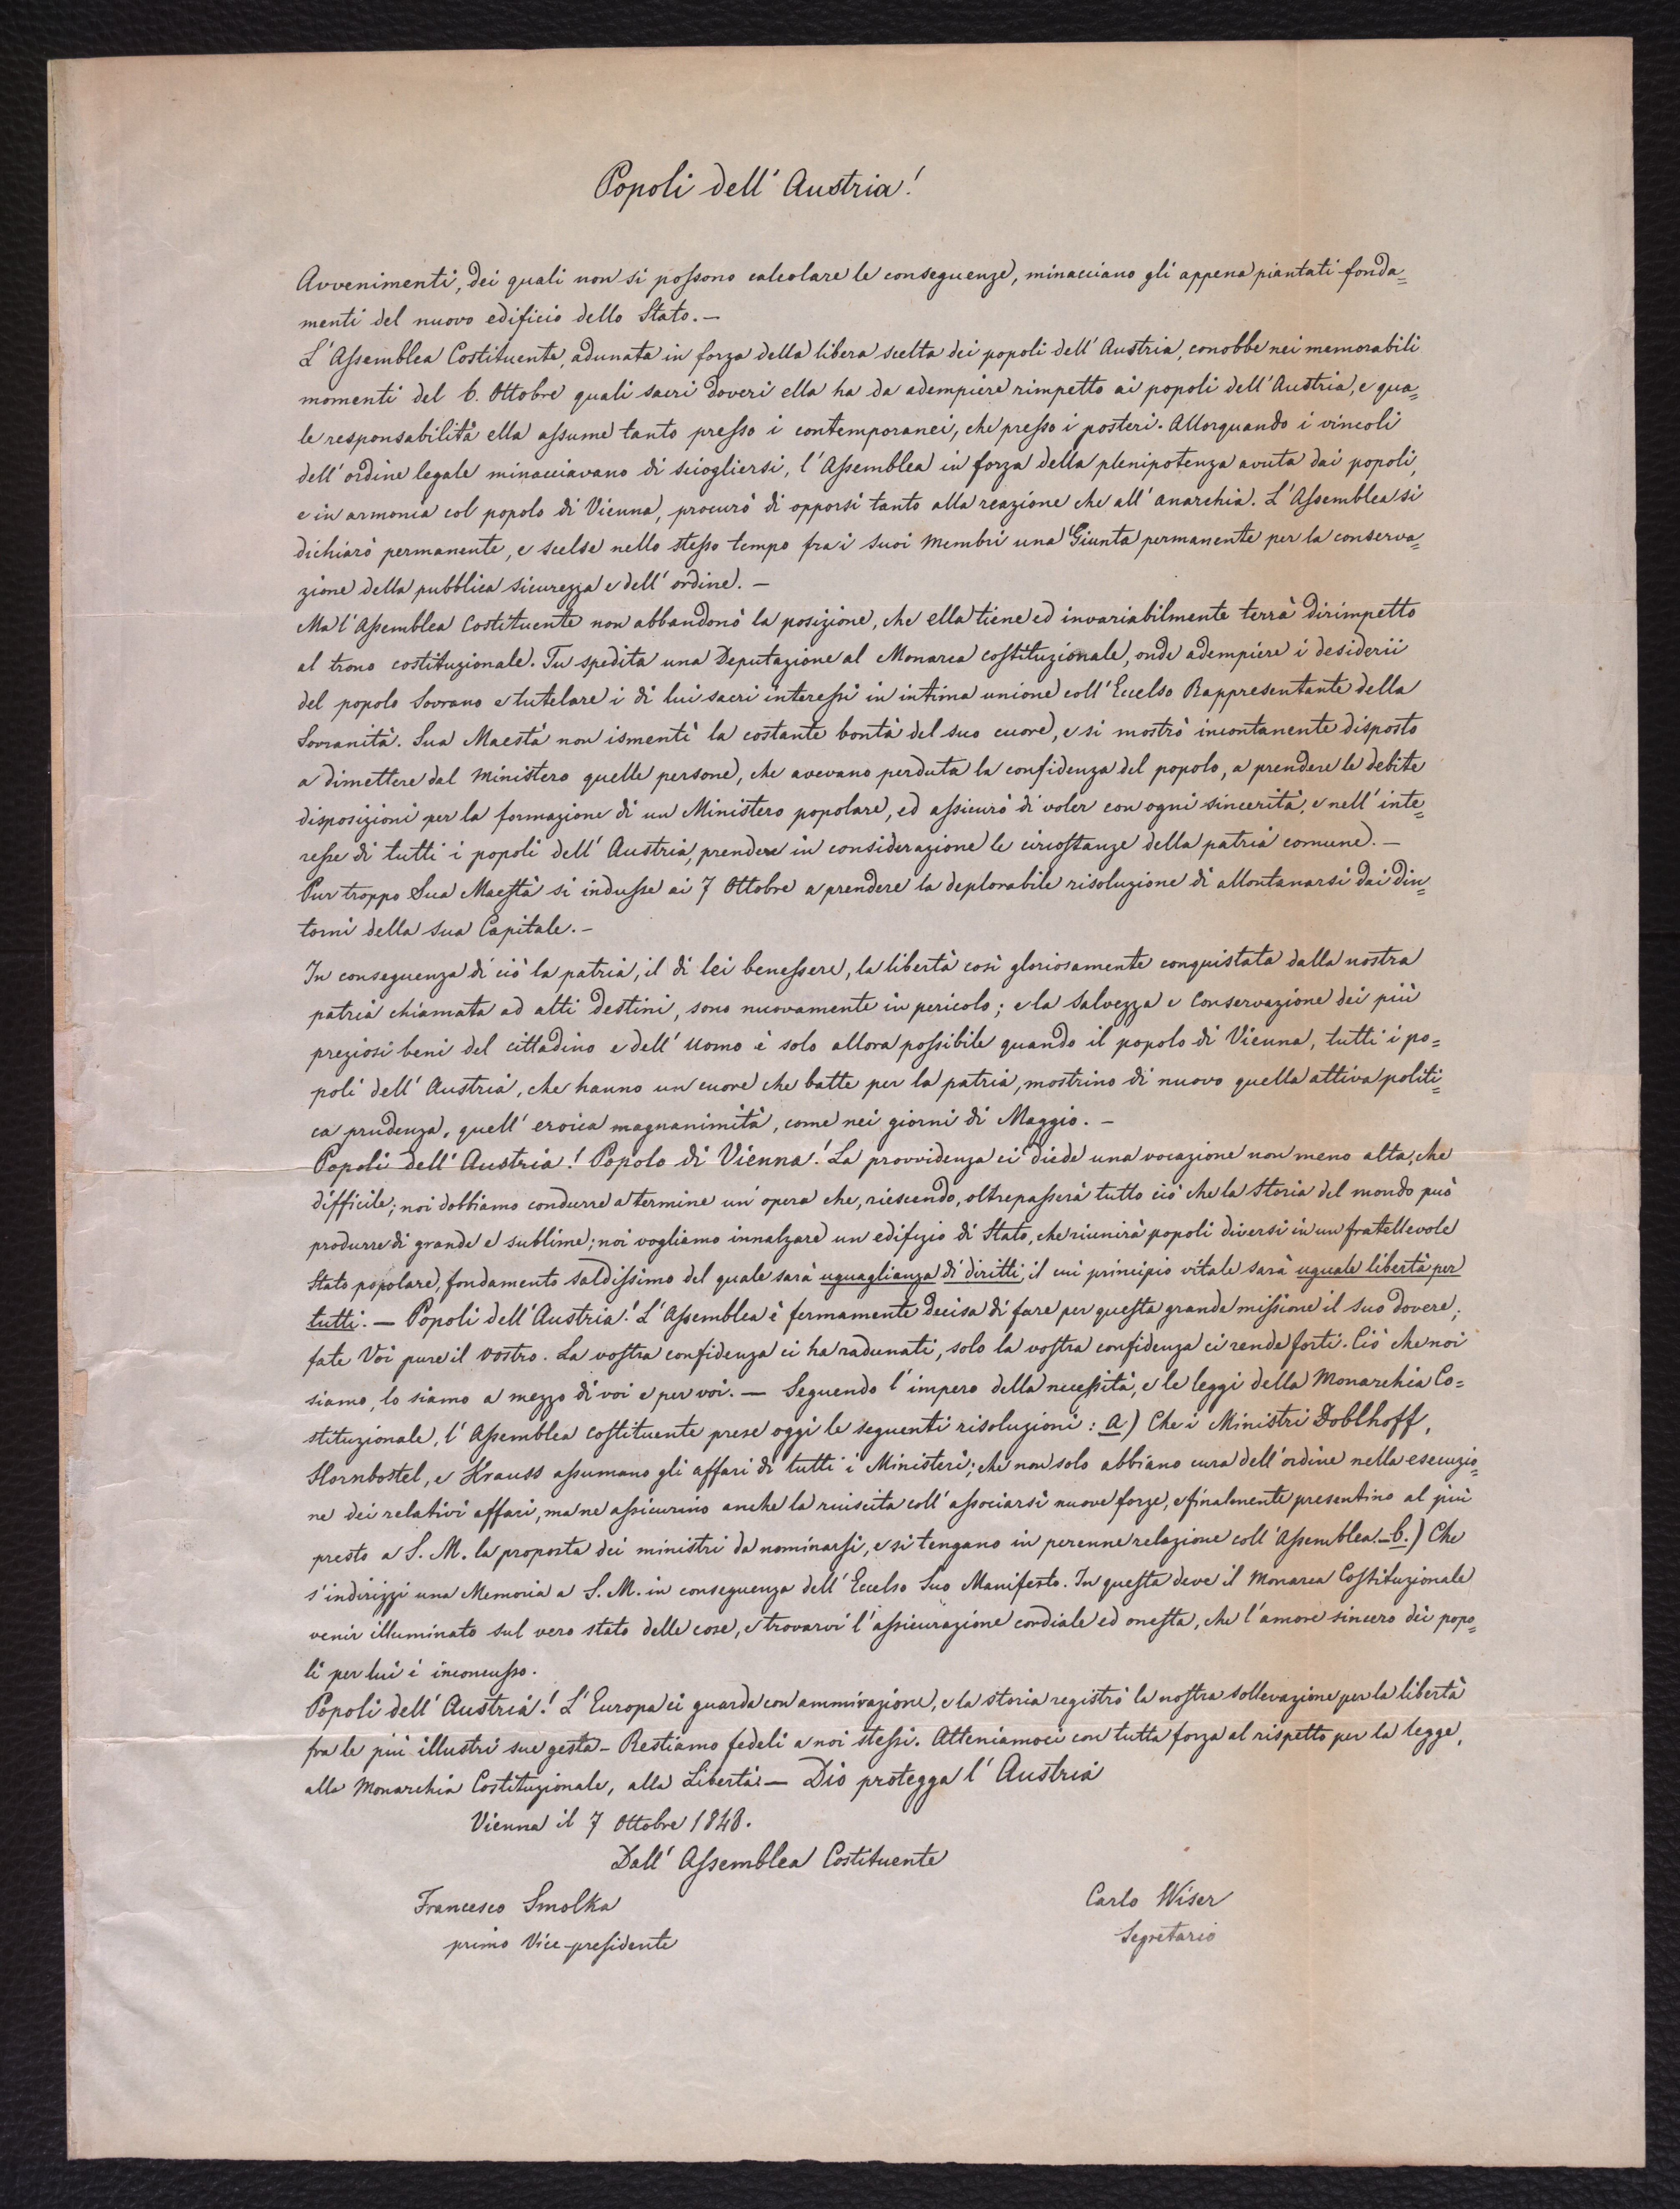 Popoli dell' Austria!
Avvenimenti, dei quali non si possono calcolare le conseguenze, minacciano gli appena piantati fonda=
menti del nuovo edificio dello Stato. —
L'Assemblea Costituente, adunata in forza della libera scelta dei popoli dell' Austria, conobbe nei memorabili
momenti del 6. Ottobre quali sacri doveri ella ha da adempiere rimpetto ai popoli dell' Austria, e qua=
le responsabilità ella assume tanto presso i contemporanei, che presso i posteri. Allorquando i vincoli
dell' ordine legale minacciavano di sciogliersi, l' Assemblea in forza della plenipotenza avuta dai popoli,
e in armonia col popolo di Vienna, procurò di opporsi tanto alla reazione che all' anarchia. L' Assemblea si
dichiarò permanente, e scelse nello stesso tempo fra i suoi Membri una Giunta permanente per la conserva=
zione della pubblica sicurezza e dell' ordine. —
Ma l' Assemblea Costituente non abbandonò la posizione, che ella tiene ed invariabilmente terrà dirimpetto
al trono costituzionale. Fu spedita una Deputazione al Monarca costituzionale, onde adempiere i desiderii
del popolo Sovrano e tutelare i di lui sacri interessi in intima unione coll' Eccelso Rappresentante della
Sovranità. Sua Maestà non ismentì la costante bontà del suo cuore, e si mostrò incontanente disposto
a dimettere dal Ministero quelle persone, che avevano perduta la confidenza del popolo, a prendere le debite
disposizioni per la formazione di un Ministero popolare, ed assicurò di voler con ogni sincerità, e nell' inte=
resse di tutti i popoli dell' Austria, prendere in considerazione le circostanze della patria comune. —
Pur troppo Sua Maestà si indusse ai 7 Ottobre a prendere la deplorabile risoluzione di allontanarsi dai din=
torni della sua Capitale. —
In conseguenza di ciò la patria, il di lei benessere, la libertà così gloriosamente conquistata dalla nostra
patria chiamata ad alti destini, sono nuovamente in pericolo; e la salvezza e conservazione dei più
preziosi beni del cittadino e dell' Uomo è solo allora possibile quando il popolo di Vienna, tutti i po=
poli dell' Austria, che hanno un cuore che batte per la patria, mostrino di nuovo quella attiva politi=
ca prudenza, quell' eroica magnanimità, come nei giorni di Maggio. —
Popoli dell' Austria! Popolo di Vienna! La provvidenza ci diede una vocazione non meno alta, che
difficile; noi dobbiamo condurre a termine un' opera che, riescendo, oltrepasserà tutto ciò che la storia del mondo può
produrre di grande e sublime; noi vogliamo innalzare un edifizio di Stato, che riunirà popoli diversi in un fratellevole
Stato popolare, fondamento saldissimo del quale sarà uguaglianza di diritti, il cui principio vitale sarà uguale libertà per
tutti. — Popoli dell' Austria! L' Assemblea è fermamente decisa di fare per questa grande missione il suo dovere,
fate Voi pure il vostro. La vostra confidenza ci ha radunati, solo la vostra confidenza ci rende forti. Ciò che noi
siamo, lo siamo a mezzo di voi e per voi. — Seguendo l' impero della necessità, e le leggi della Monarchia Co=
stituzionale, l' Assemblea costituente prese oggi le seguenti risoluzioni: a) Che i Ministri Doblhoff,
Hornbostel, e Krauss assumano gli affari di tutti i Ministeri; che non solo abbiano cura dell' ordine nella esecuzio=
ne dei relativi affari, ma ne assicurino anche la riuscita coll' associarsi nuove forze, e finalmente presentino al più
presto a S. M. la proposta dei ministri da nominarsi, e si tengano in perenne relazione coll' Assemblea. — b.) Che
s' indirizzi una Memoria a S. M. in conseguenza dell' Eccelso Suo Manifesto. In questa deve il Monarca Costituzionale
venir illuminato sul vero stato delle cose, e trovarvi l' assicurazione cordiale ed onesta, che l' amore sincero dei popo=
li per lui è inconcusso.
Popoli dell' Austria! L' Europa ci guarda con ammirazione, e la storia registrò la nostra sollevazione per la libertà
fra le più illustri sue gesta — Restiamo fedeli a noi stessi. Atteniamoci con tutta forza al rispetto per la legge,
alla Monarchia Costituzionale, alla Libertà — Dio protegga l' Austria
Vienna il 7 Ottobre 1848.
Dall' Assemblea Costituente
Francesco Smolka
primo Vice-presidente
Carlo Wiser
Segretario